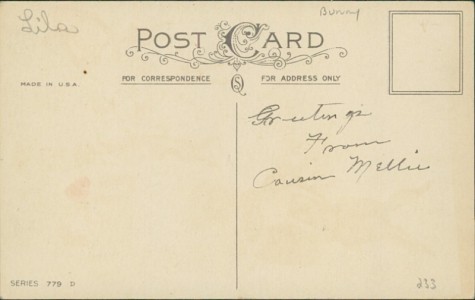 Lila
Bunny
POST CARD
MADE IN U.S.A.
FOR CORRESPONDENCE
FOR ADDRESS ONLY
Greetings
From
Cousin Mellie
SERIES 779 D
233